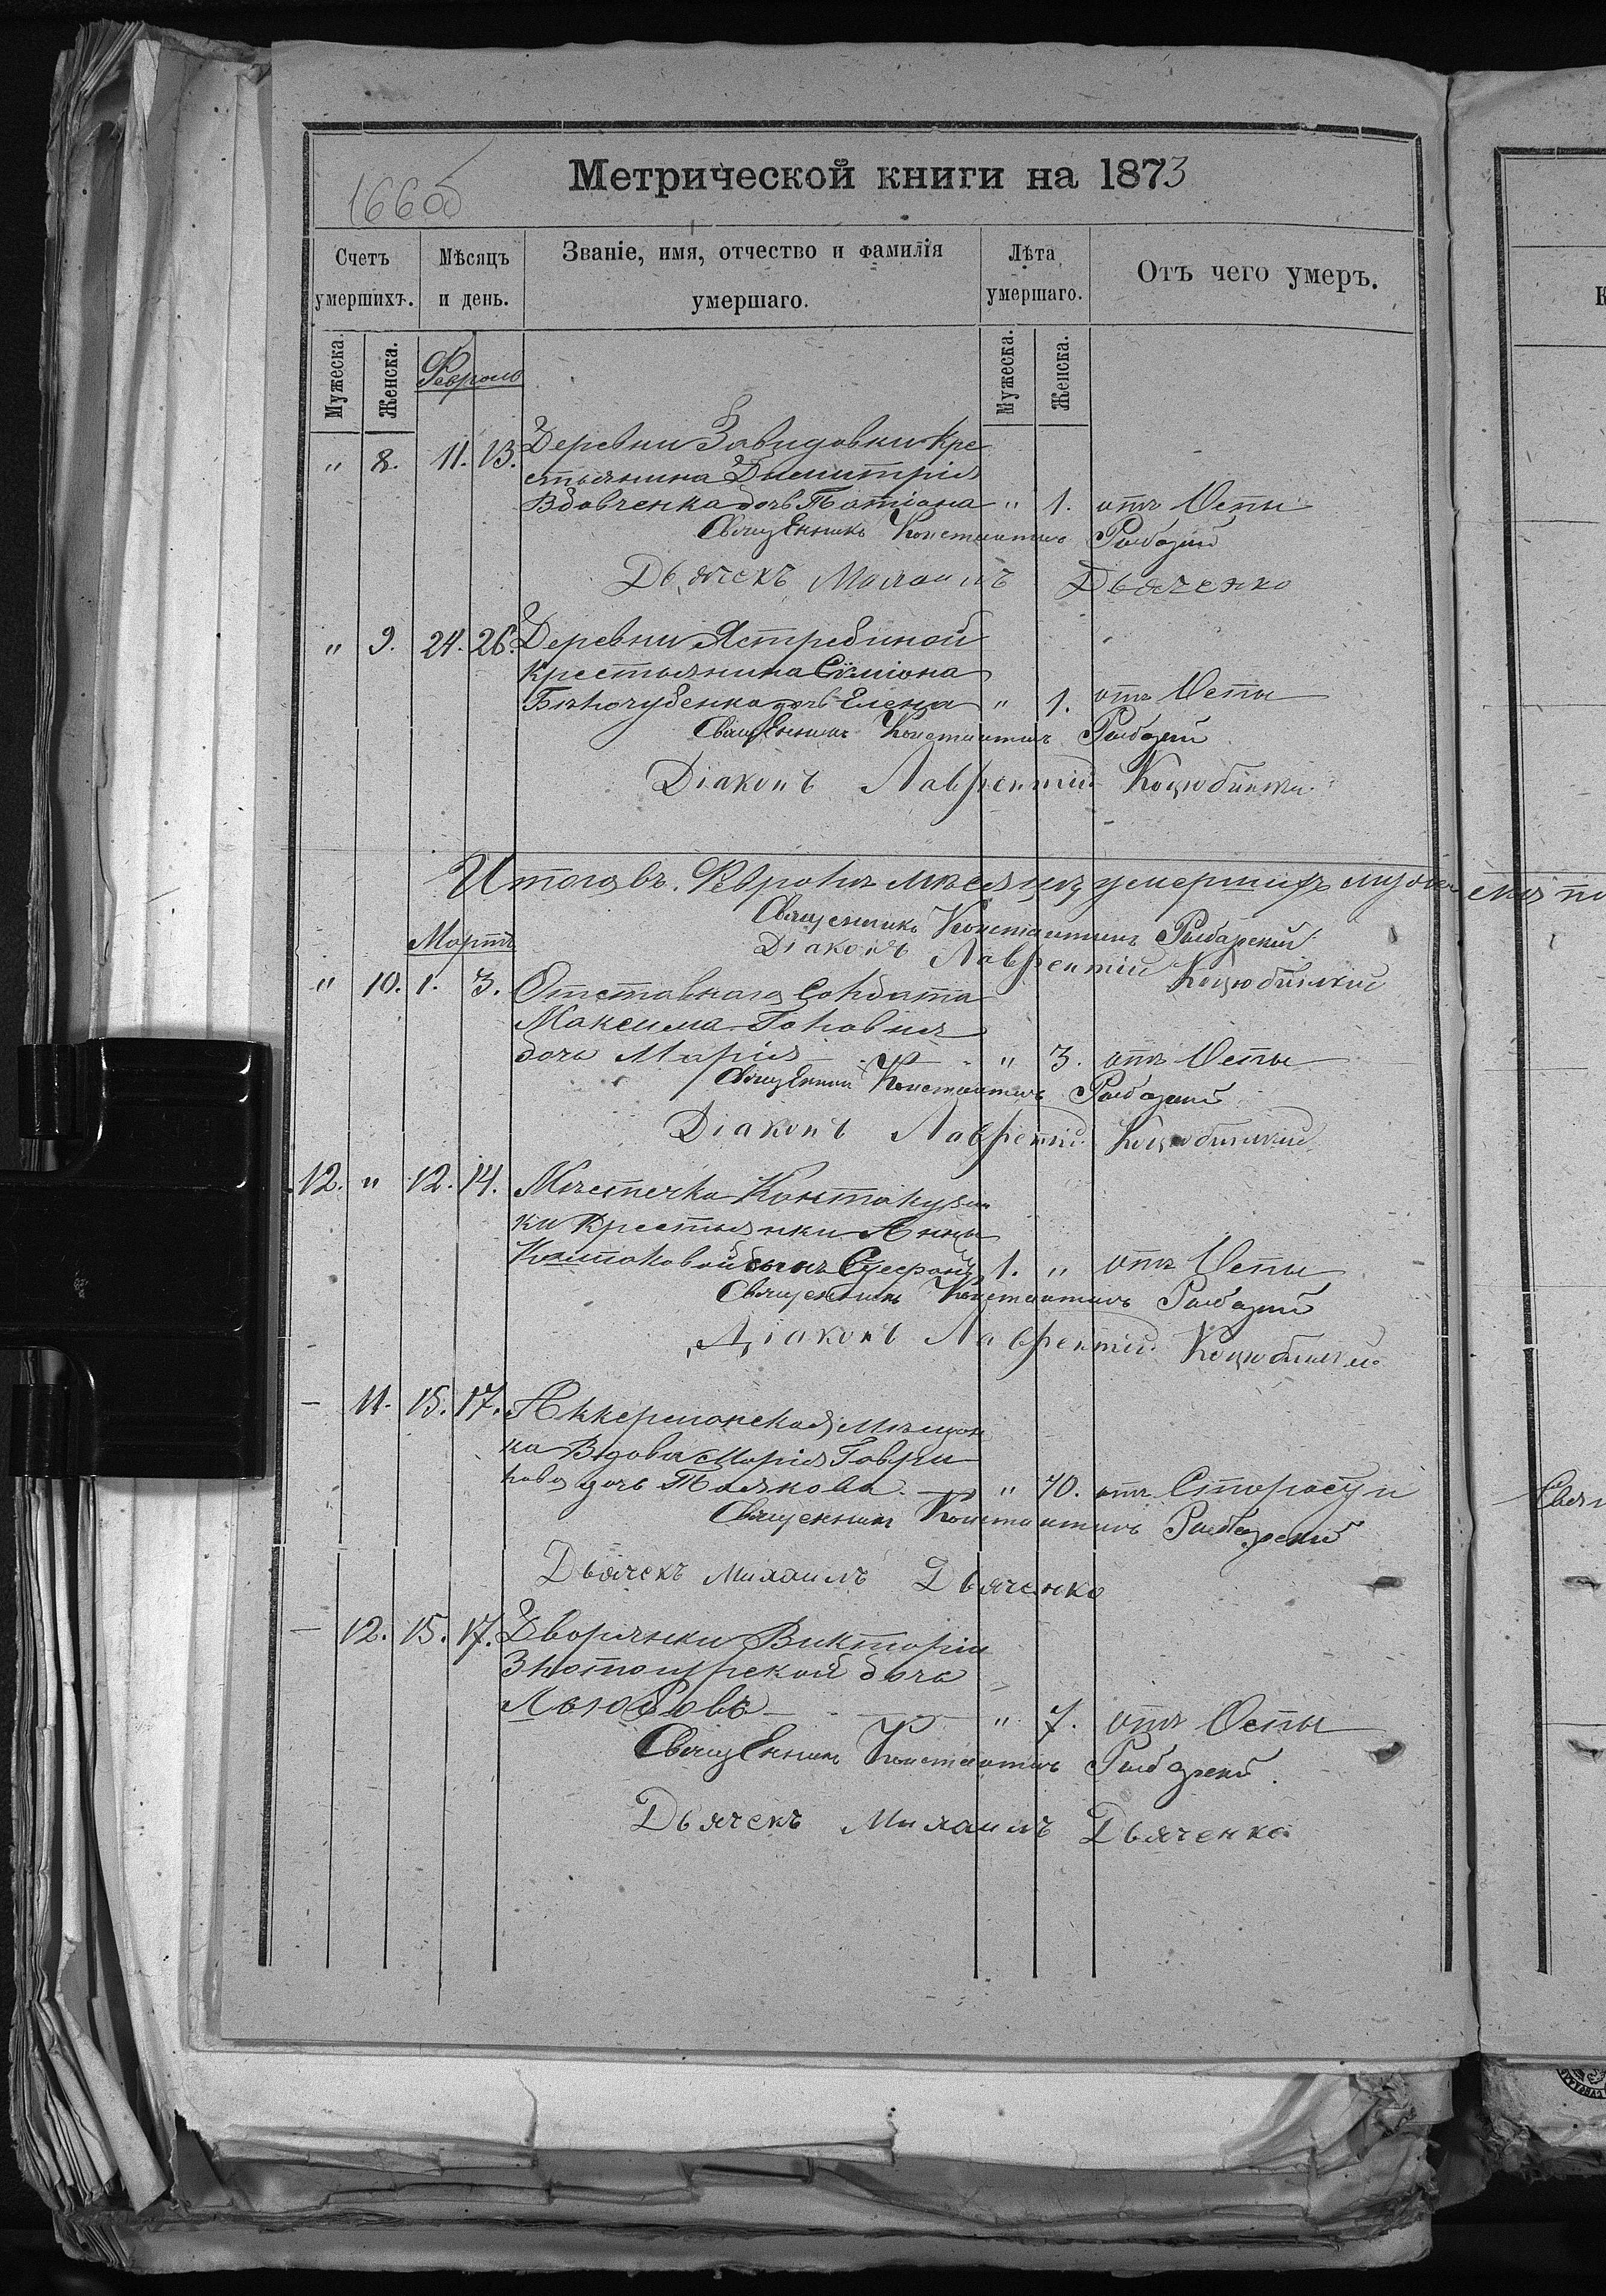 166об
Метрической книги на 1873
Счетъ умершихъ.
Мѣсяцъ и день.
Званіе, имя, отчество и фамилія умершаго.
Лѣта умершаго.
Отъ чего умеръ.
Мужеска.
Женска.
Мужеска.
Женска.
Февраль
" 8. 11. 13. Деревни Завидовки кре
стьянина Димитрія
Вдовченка дочь Татіана " 1. отъ Оспы
Священникъ Константинъ
Дьячекъ Михаилъ Дьяченко
" 9. 24. 26. Деревни Ястребиной
крестьянина Симіона
Бѣлочубенка дочь Елена " 1. отъ Оспы
Священникъ Константинъ
Діаконъ Лаврентій Коцюбинскій
Итого въ Февралѣ мѣсяцѣ умершихъ
Священникъ Константинъ
Діаконъ Лаврентій Коцюбинскій
Мартъ
" 10. 1. 3. Отставнаго Солдата
Максима Головня
дочь Марія " 3. отъ Оспы
Священникъ Константинъ
Діаконъ Лаврентій Коцюбинскій
12. " 12. 14. Мѣстечка Кантакузен
ки Крестьянки Анны
сынъ 1. " отъ Оспы
Священникъ Константинъ
Діаконъ Лаврентій Коцюбинскій
— 11. 15. 17. Аккерманская мѣщан
ка Вдова Марія Гаври
лова дочь " 70. отъ Старости
Священникъ Константинъ
Дьячекъ Михаилъ Дьяченко
— 12. 15. 17. Дворянки Викторіи
дочь
Любовь " 7. отъ Оспы
Священникъ Константинъ
Дьячекъ Михаилъ Дьяченко